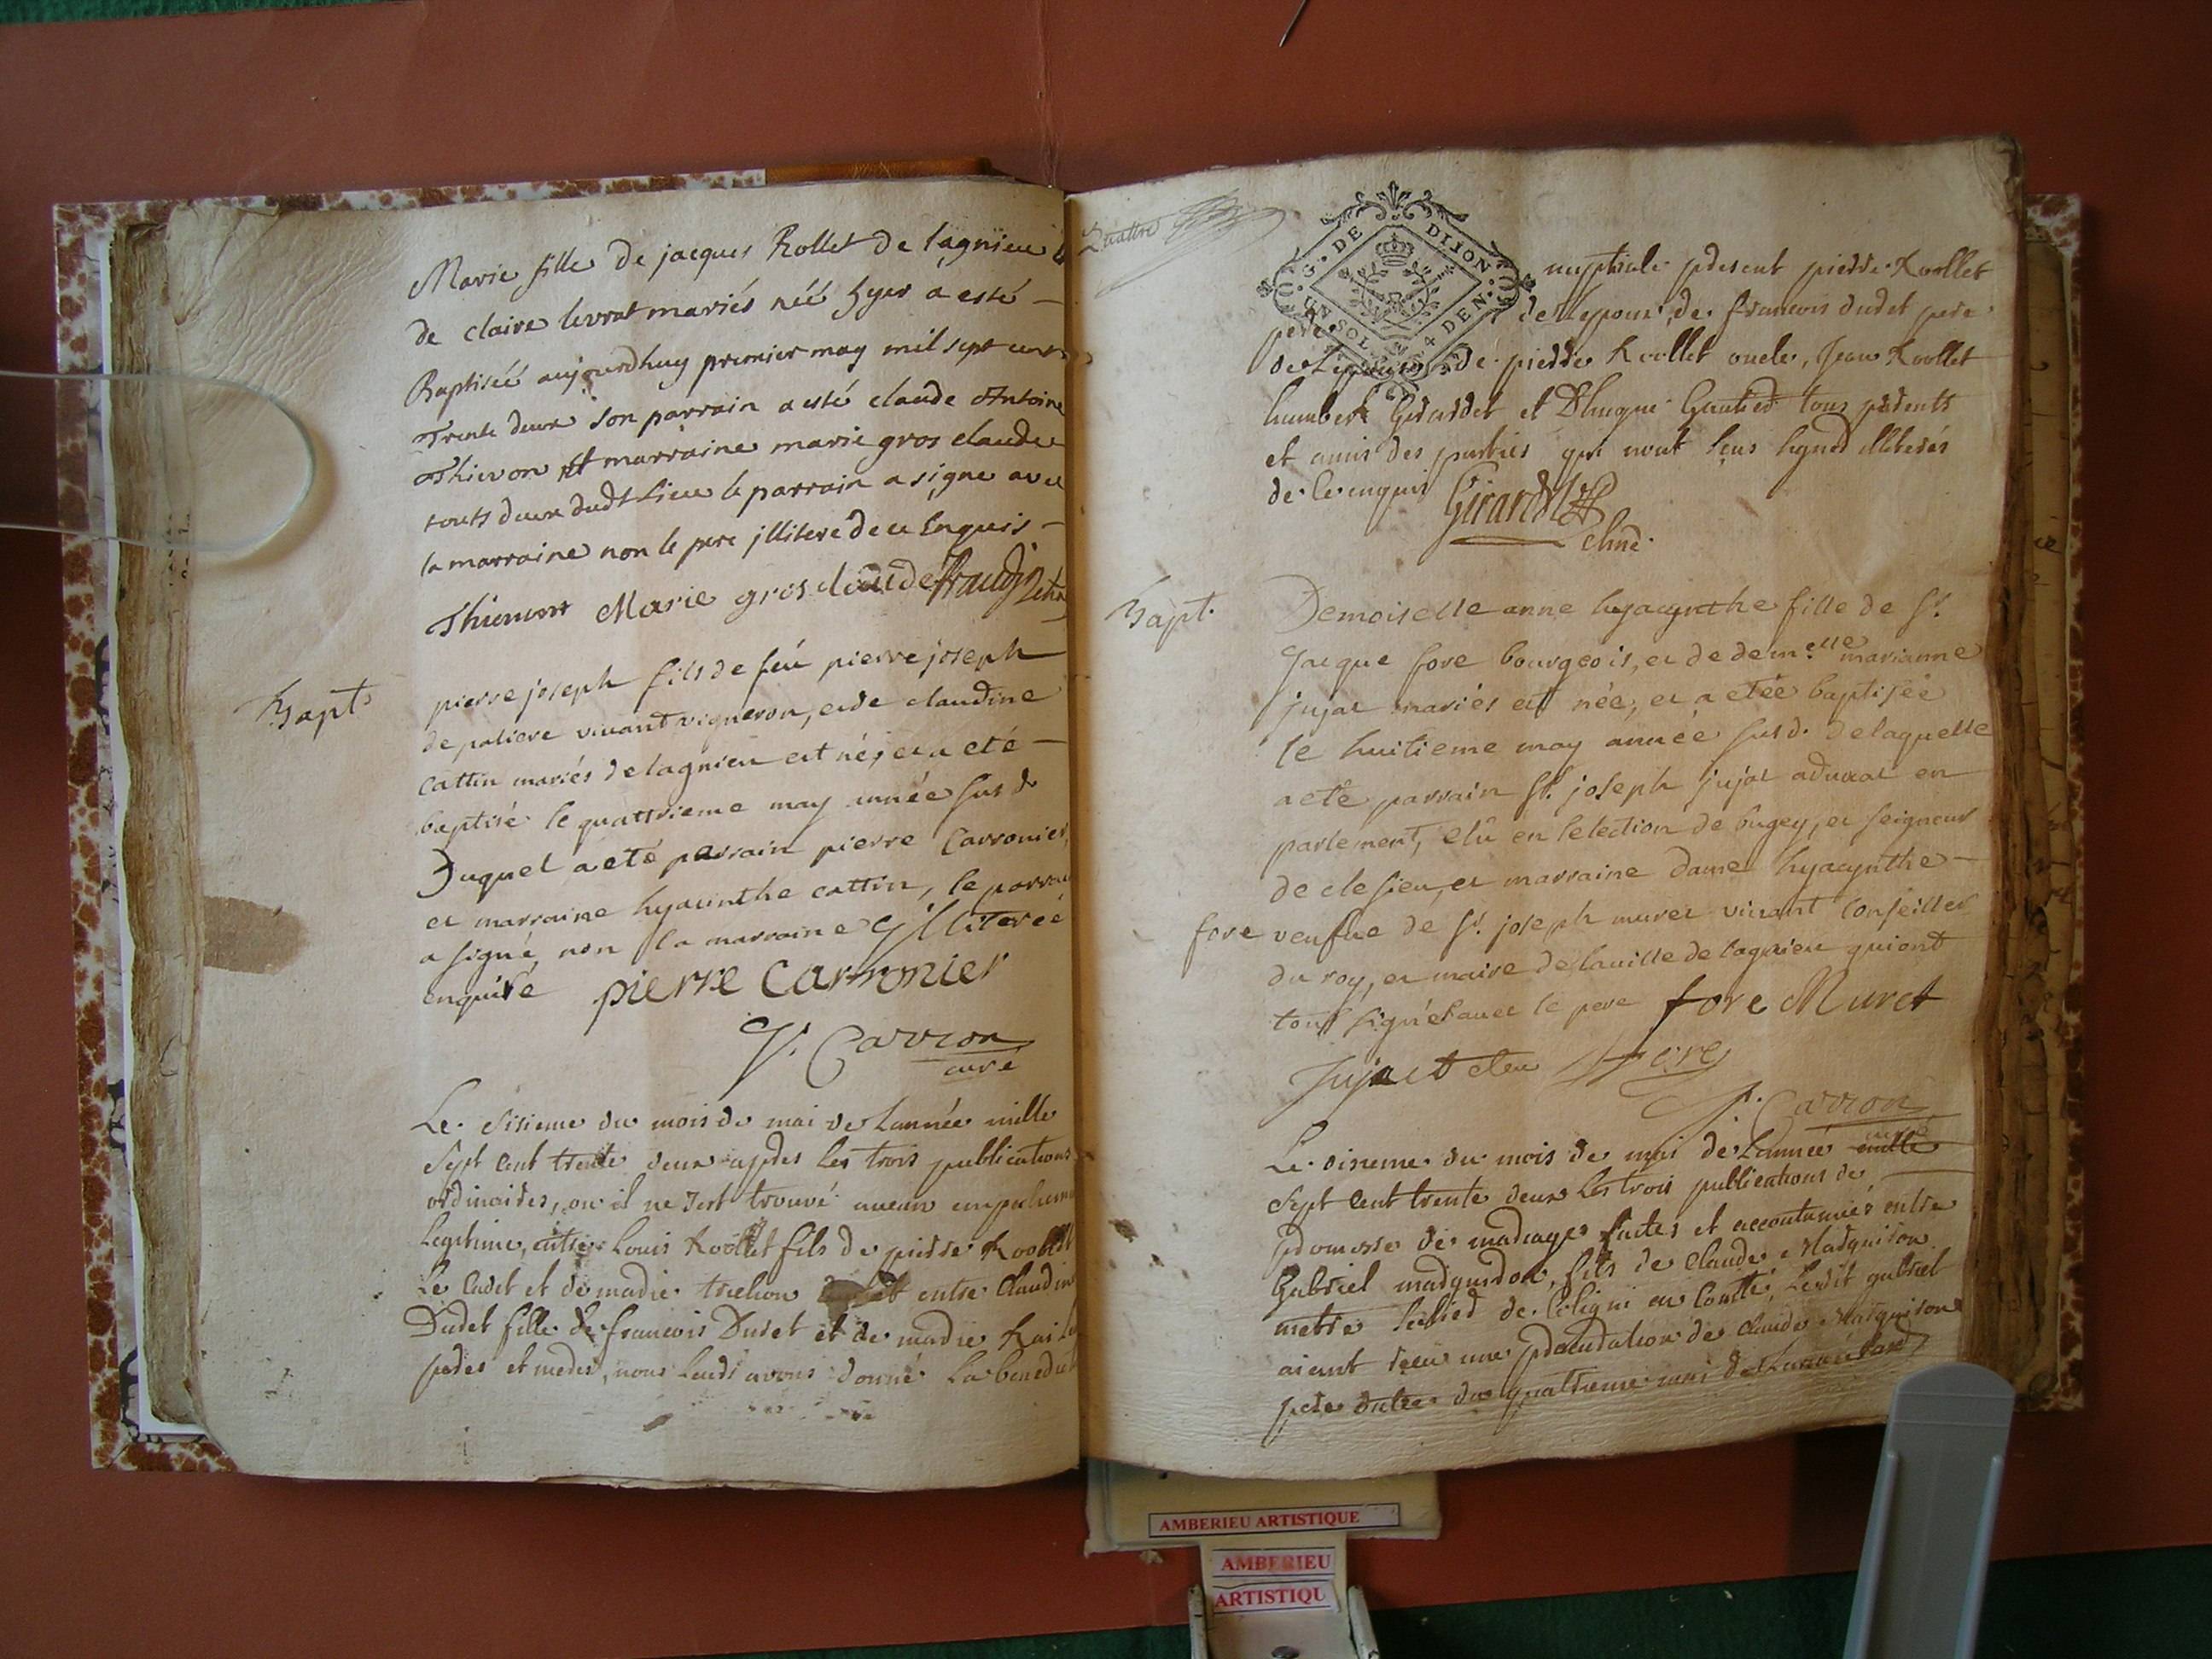 Marie fille de jacques Rollet de lagnieu &
de claire levrat mariés néé hyer a esté
Baptiséé aujourdhuy premier may mil sept cent
Trente deux son parrain a esté claude Antoine
Thievon et marraine marie gros claude
touts deux dudt Lieu le parrain a signe avec
la marraine non le pere jllitere de ce Enquis
Thievont Marie gros claude
Bapt
pierre joseph fils de feu pierre joseph
de paliere vivant vigneron, et de claudine
cattin mariés de lagnieu est né, et a eté
baptisé le quattrieme may année sus d
Duquel a eté parrain pierre Carronier,
et marraine hyacinthe cattin, le parrain
a signé, non la marraine Jlliterée
enquise pierre Carronier
J. Carron
curé
Le sisieme du mois de mai de Lannée mille
Sept cent trente deux apres les trois publications
ordinaires, ou il ne sest trouvé aucun
Legitime, entre Louis Roollet fils de pierre Roollet
Le Cadet et de marie et entre Claudine
Dudet fille de francois Dudet et de marie
peres et meres, nous leurs avons donné La
Quattre
G. DE DIJON
UN SOL 4 DEN.
nuptiale present pierre Roollet
pere de lepoux, de francois dudet pere
de Lepouse de pierre Roollet oncle, Jean Roollet
humbert Girardet et tous parents
et amis des parties qui nont sçus signer illiterés
de ce enquis Girardet
Bapt.
Demoiselle anne hyacynthe fille de Sr.
Jacque fore bourgeois, et de demelle marianne
jujat mariés est née, et a etée baptisée
le huitieme may année susd. de laquelle
a eté parrain Sr. joseph jujat advocat en
parlement, elû en lelection de bugey, et seigneur
de clesieu, et marraine dame hyacynthe
fore veufue de Sr. joseph muret vivant Conseiller
du roy, et maire de la ville de lagnieu qui ont
tous signés avec le pere fore Muret
Jujat elu Fore
J. Carron
curé
Le sisieme du mois de mai de Lannée mille
Sept cent trente deux Les trois publications de
promesse de mariages faites et accoutumées entre
Gabriel marguiron, fils de Claude Marguiron
metre de Coligni en Comté, Ledit gabriel
aiant une de claude Marguiron
pere dattee du quatrieme mai de Lannée
AMBERIEU ARTISTIQUE
AMBERIEU
ARTISTIQU